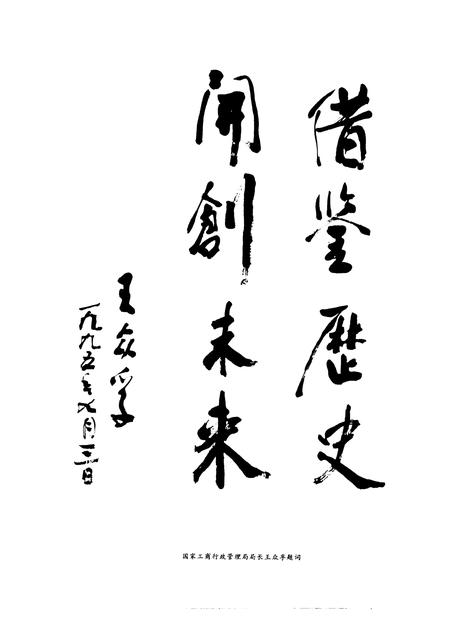 借鉴歷史
開創未來
王众孚
一九九五年七月三日
国家工商行政管理局局长王众孚题词